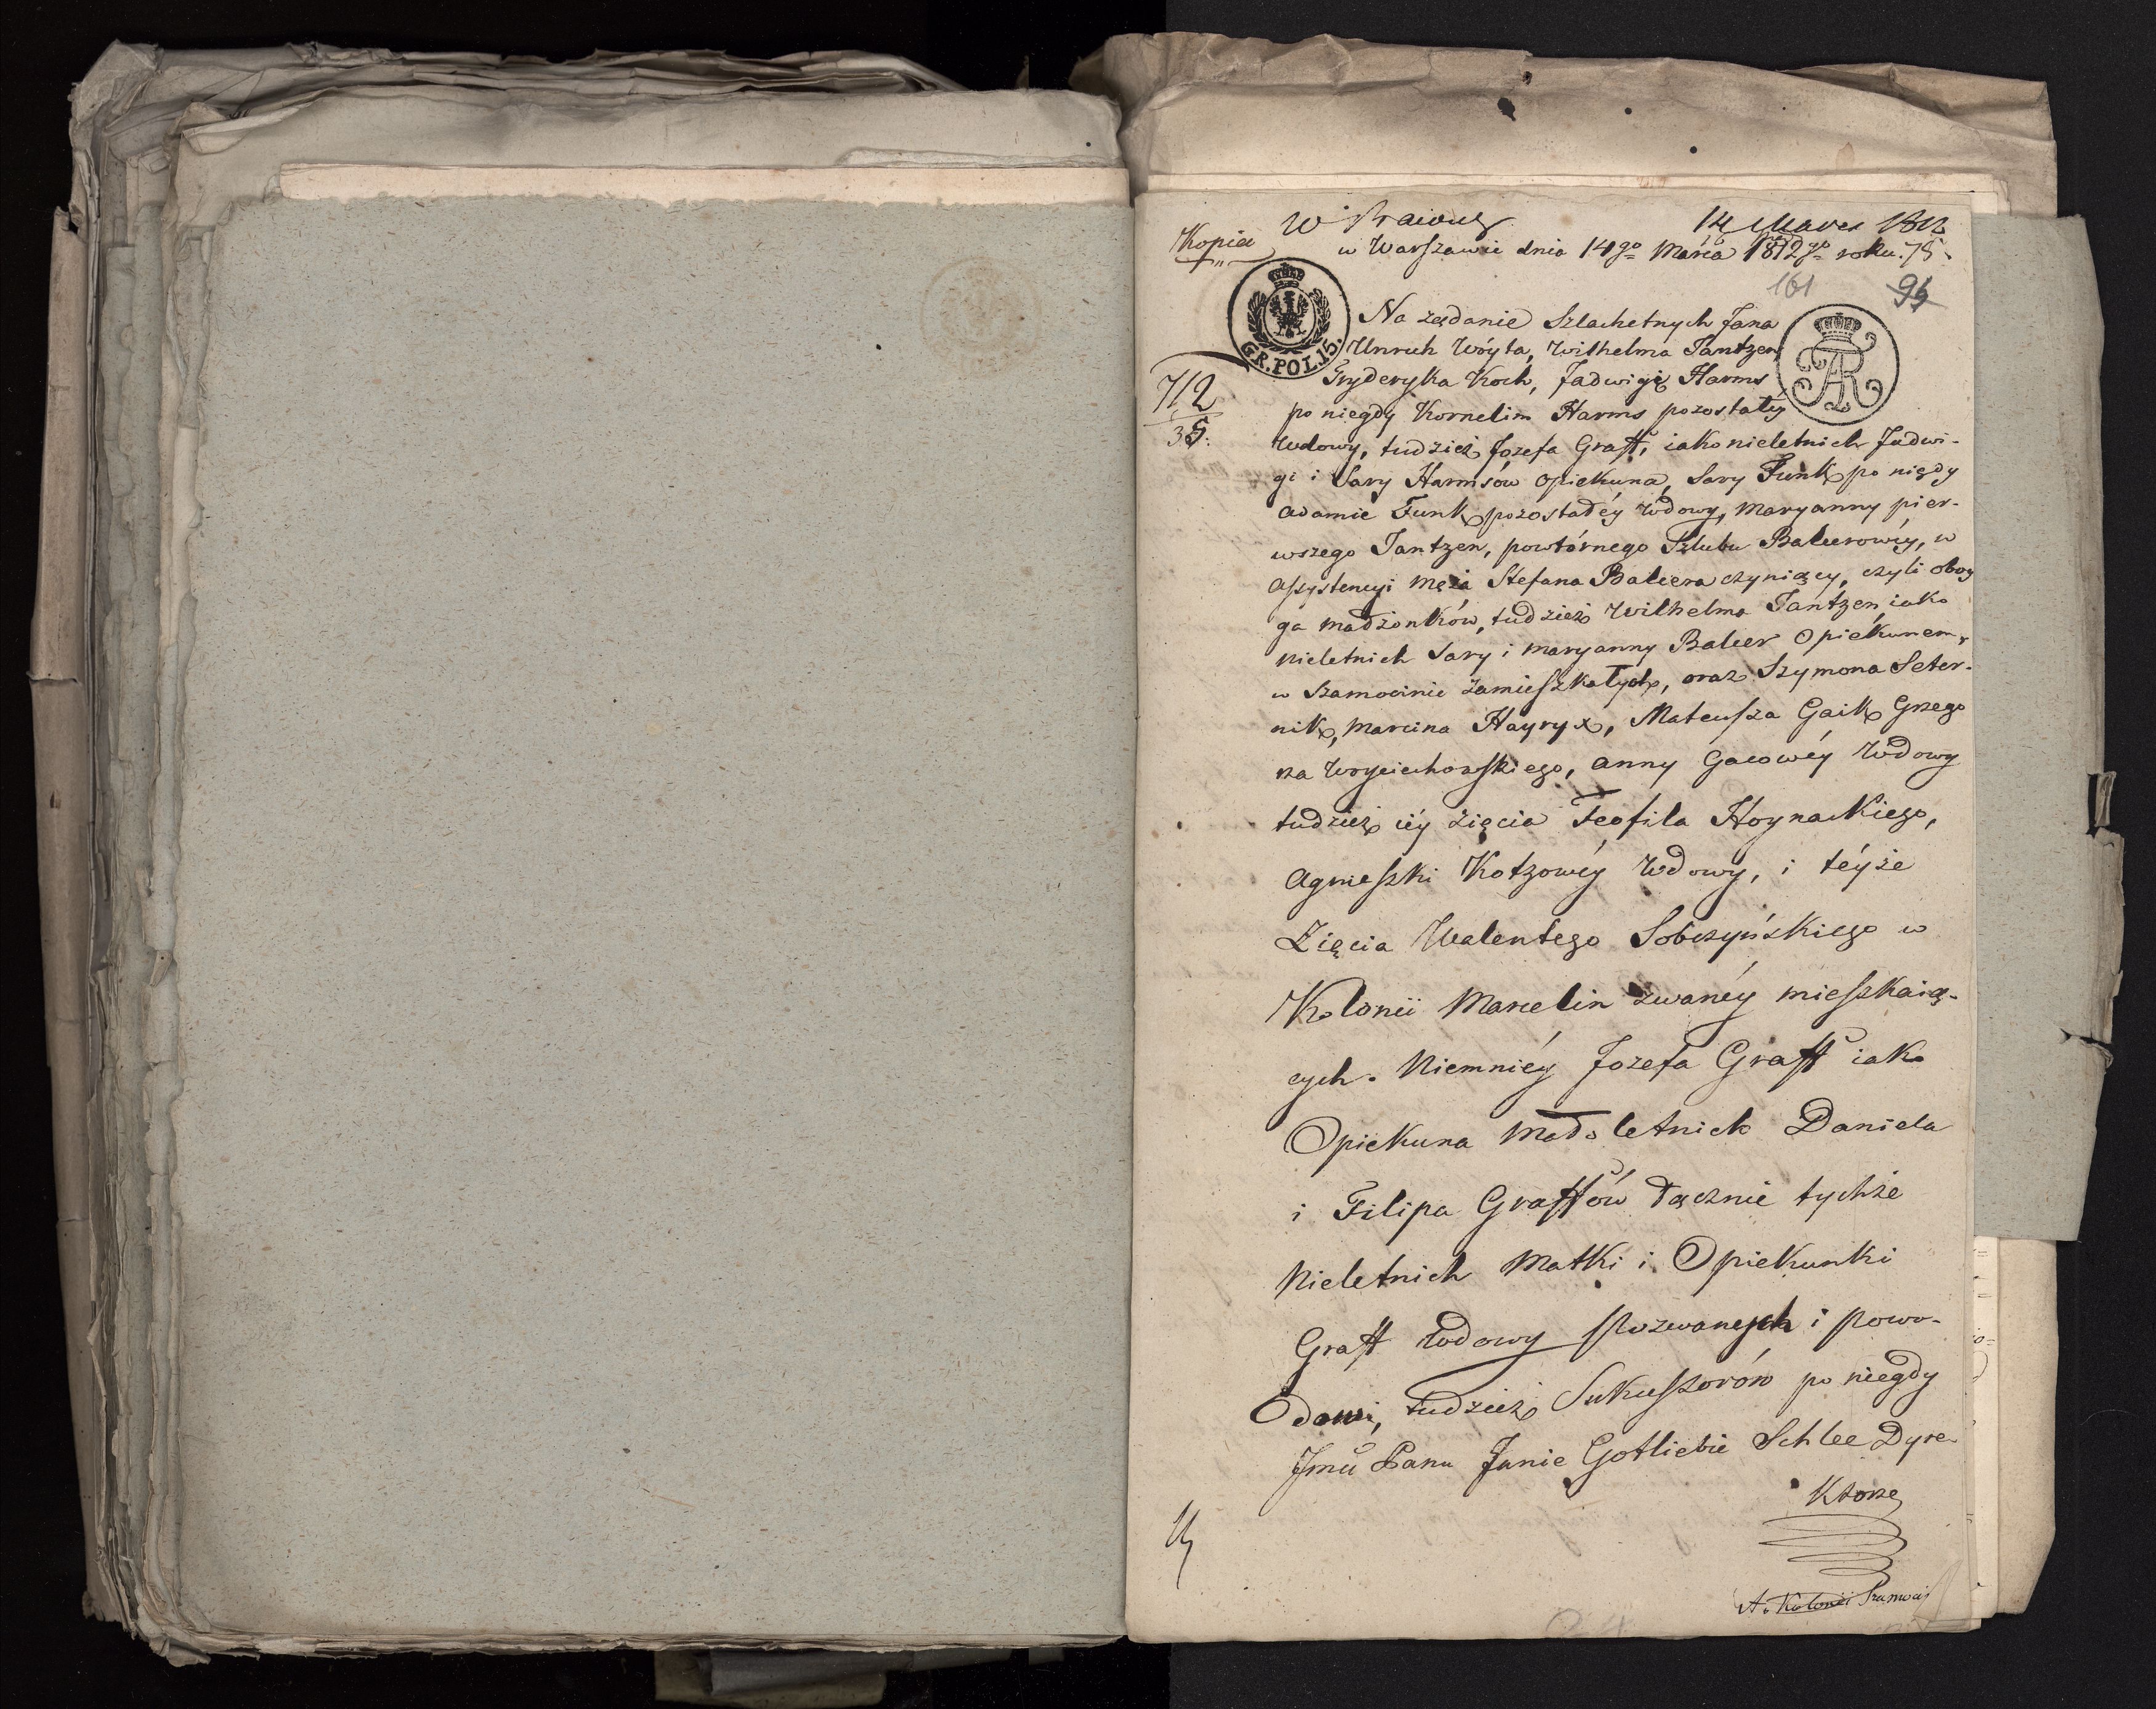 Kopia
14 Marca 1812
w Warszawie dnia 14go Marca 1812go roku. 75.
101
94
GR. POL. 15.
712
35.
Na żądanie Szlachetnych Jana
Unruh Wóyta, Wilhelma Jantzen
Fryderyka Koch, Jadwigi Harms
po niegdy Kornelim Harms pozostałéy
Wdowy, tudzież Jozefa Grafft, iako nieletnich Jadwi-
gi i Sary Harmsów Opiekuna, Sary Funk po niegdy
Adamie Funk pozostałéy Wdowy, Maryanny pier-
wszego Jantzen, powtórnego Szlubu Balierowéy, w
Assystencyi Męża Stefana Baliera czyniący, czyli oboy
ga małżonków, tudzież Wilhelma Jantzen iako
Nieletnich Sary i Maryanny Balier Opiekunem,
w Szamocinie zamieszkałych, oraz Szymona Seter-
nik, Marcina Hayryx, Mateusza Gaik Grzego
rza Woyciechowskiego, Anny Gacowéy Wdowy
tudzież iéy Zięcia Teofila Hoynackiego,
Agnieszki Kotzowéy Wdowy, i téyże
Zięcia Walentego Sobczyńskiego w
Kolonii Marcelin zwanéy mieszkaią-
cych. Niemniéy Jozefa Grafft iako
Opiekuna Małoletnich Daniela
i Filipa Grafftów łącznie tychże
Nieletnich Matki i Opiekunki
Grafft Wdowy Pozwanych i Powo-
dowi, tudzież Sukcessorów po niegdy
Jmć Panu Janie Gotliebie Schlee Dyre
Ktorze
A. Kolonii Szamoci